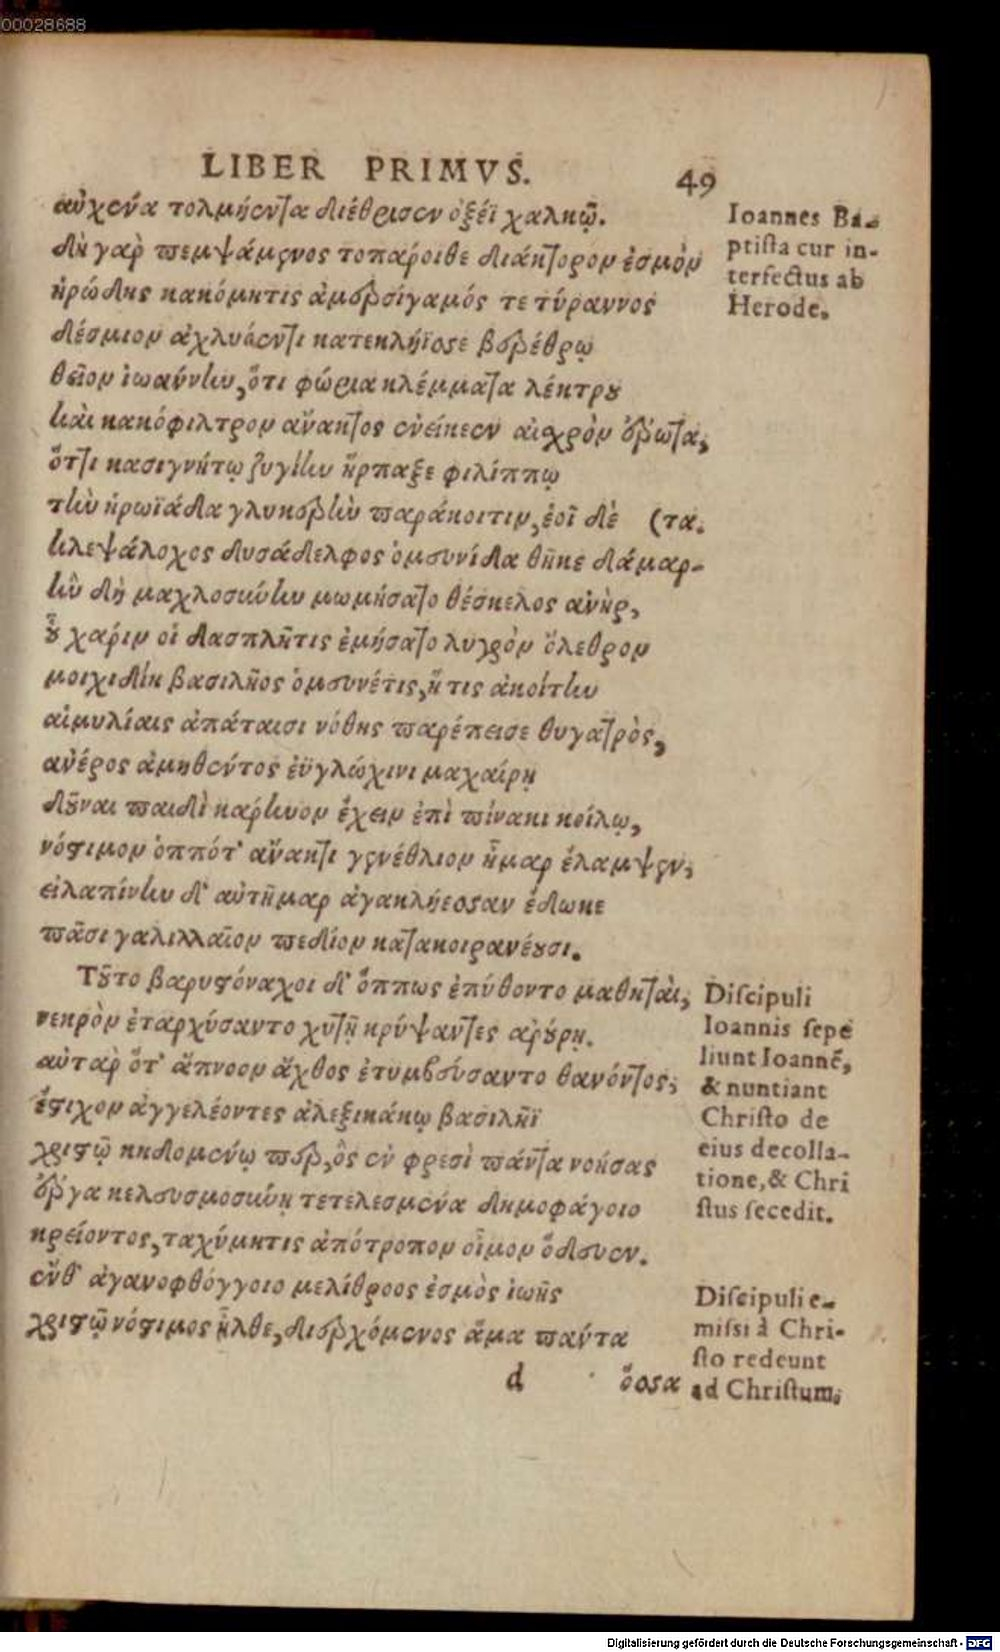 00028688
LIBER PRIMVS. 49
αὐχένα τολμήεντα διέθρισεν ὀξέϊ χαλκῷ.
δὴ γὰρ πεμψάμενος τοπάροιθε διάκτορον ἑσμὸν
ἡρώδης κακόμητις ἀμερσίγαμός τε τύραννος
δέσμιον ἀχλυόεντι κατεκλήϊσε βερέθρῳ
θεῖον ἰωάννην, ὅτι φώρια κλέμματα λέκτρου
καὶ κακόφιλτρον ἄνακτος ἐνείκεεν αἰσχρὸν ἔρωτα,
ὅττι κασιγνήτῳ ζυγίην ἥρπαξε φιλίππῳ
τὴν ἡρωϊάδα γλυκερὴν παράκοιτιν, ἑοῖ δὲ (τα.
κλεψάλοχος δυσάδελφος ὁμευνίδα θῆκε δάμαρ-
ἣν δὴ μαχλοσύνην μωμήσατο θέσκελος ἀνὴρ,
οὗ χάριν οἱ δασπλῆτις ἐμήσατο λυγρὸν ὄλεθρον
μοιχιδίη βασιλῆος ὁμευνέτις, ἥ τις ἀκοίτην
αἱμυλίαις ἀπάταισι νόθης παρέπεισε θυγατρὸς,
ἀνέρος ἀμηθέντος ἐϋγλώχινι μαχαίρῃ
δοῦναι παιδὶ κάρηνον ἔχειν ἐπὶ πίνακι κοίλῳ,
νόστιμον ὁππότ' ἄνακτι γενέθλιον ἦμαρ ἔλαμψεν,
εἰλαπίνην δ' αὐτῆμαρ ἀγακλήεσσαν ἔδωκε
πᾶσι γαλιλλαῖον πεδίον κατακοιρανέουσι.
Τοῦτο βαρυστόναχοι δ' ὅππως ἐπύθοντο μαθηταὶ,
νεκρὸν ἐταρχύσαντο χυτῇ κρύψαντες ἀρούρῃ.
αὐτὰρ ὅτ' ἄπνοον ἄχθος ἐτυμβεύσαντο θανόντος,
ἔστιχον ἀγγελέοντες ἀλεξικάκῳ βασιλῆϊ
χριστῷ κηδομένῳ περ, ὃς ἐν φρεσὶ πάντα νοήσας
ἔργα κελευσμοσύνῃ τετελεσμένα δημοφάγοιο
κρείοντος, ταχύμητις ἀπότροπον οἶμον ὅδευεν.
ἔνθ' ἀγανοφθόγγοιο μελίθροος ἑσμὸς ἰωῆς
χριστῷ νόστιμος ἦλθε, διερχόμενος ἅμα πάντα
d ὅσσα
Ioannes Ba-
ptista cur in-
terfectus ab
Herode.
Discipuli
Ioannis sepe
liunt Ioannē,
& nuntiant
Christo de
eius decolla-
tione, & Chri
stus secedit.
Discipuli e-
missi à Chri-
sto redeunt
ad Christum.
Digitalisierung gefördert durch die Deutsche Forschungsgemeinschaft - DFG